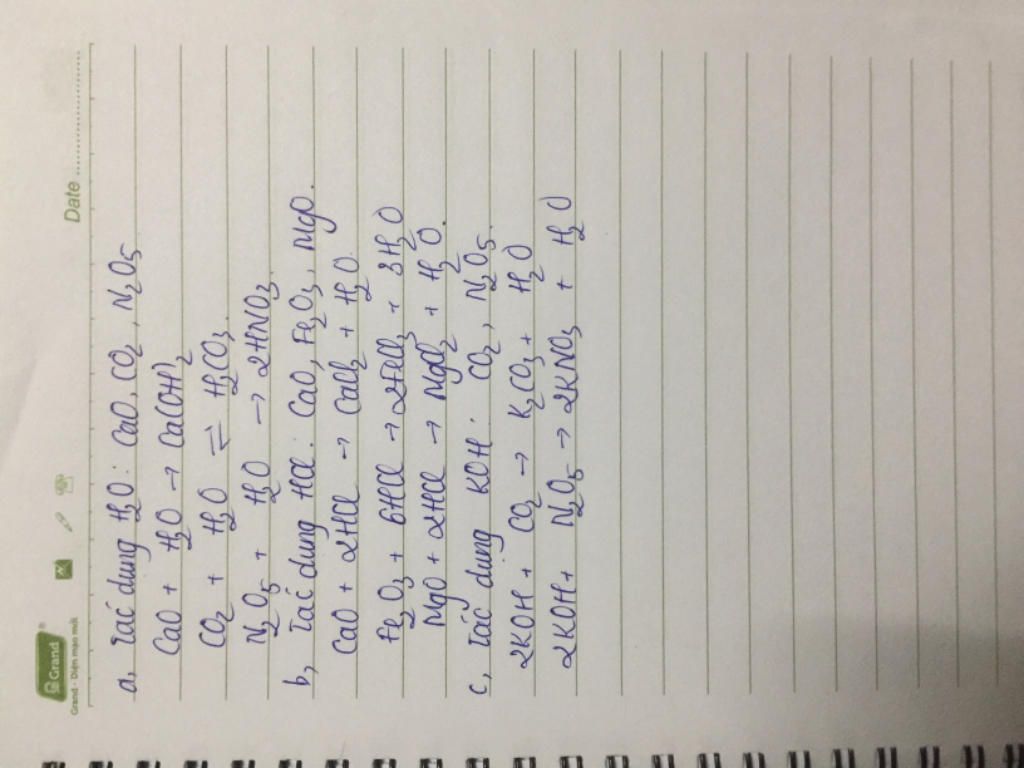 Grand ®
Grand - Diện mạo mới
Date
a, Tác dụng H₂O: CaO, CO₂, N₂O₅
CaO + H₂O → Ca(OH)₂
CO₂ + H₂O ⇌ H₂CO₃.
N₂O₅ + H₂O → 2HNO₃.
b, Tác dụng HCl: CaO, Fe₂O₃, MgO.
CaO + 2HCl → CaCl₂ + H₂O.
Fe₂O₃ + 6HCl → 2FeCl₃ + 3H₂O
MgO + 2HCl → MgCl₂ + H₂O.
c, Tác dụng KOH: CO₂, N₂O₅.
2KOH + CO₂ → K₂CO₃ + H₂O
2KOH + N₂O₅ → 2KNO₃ + H₂O